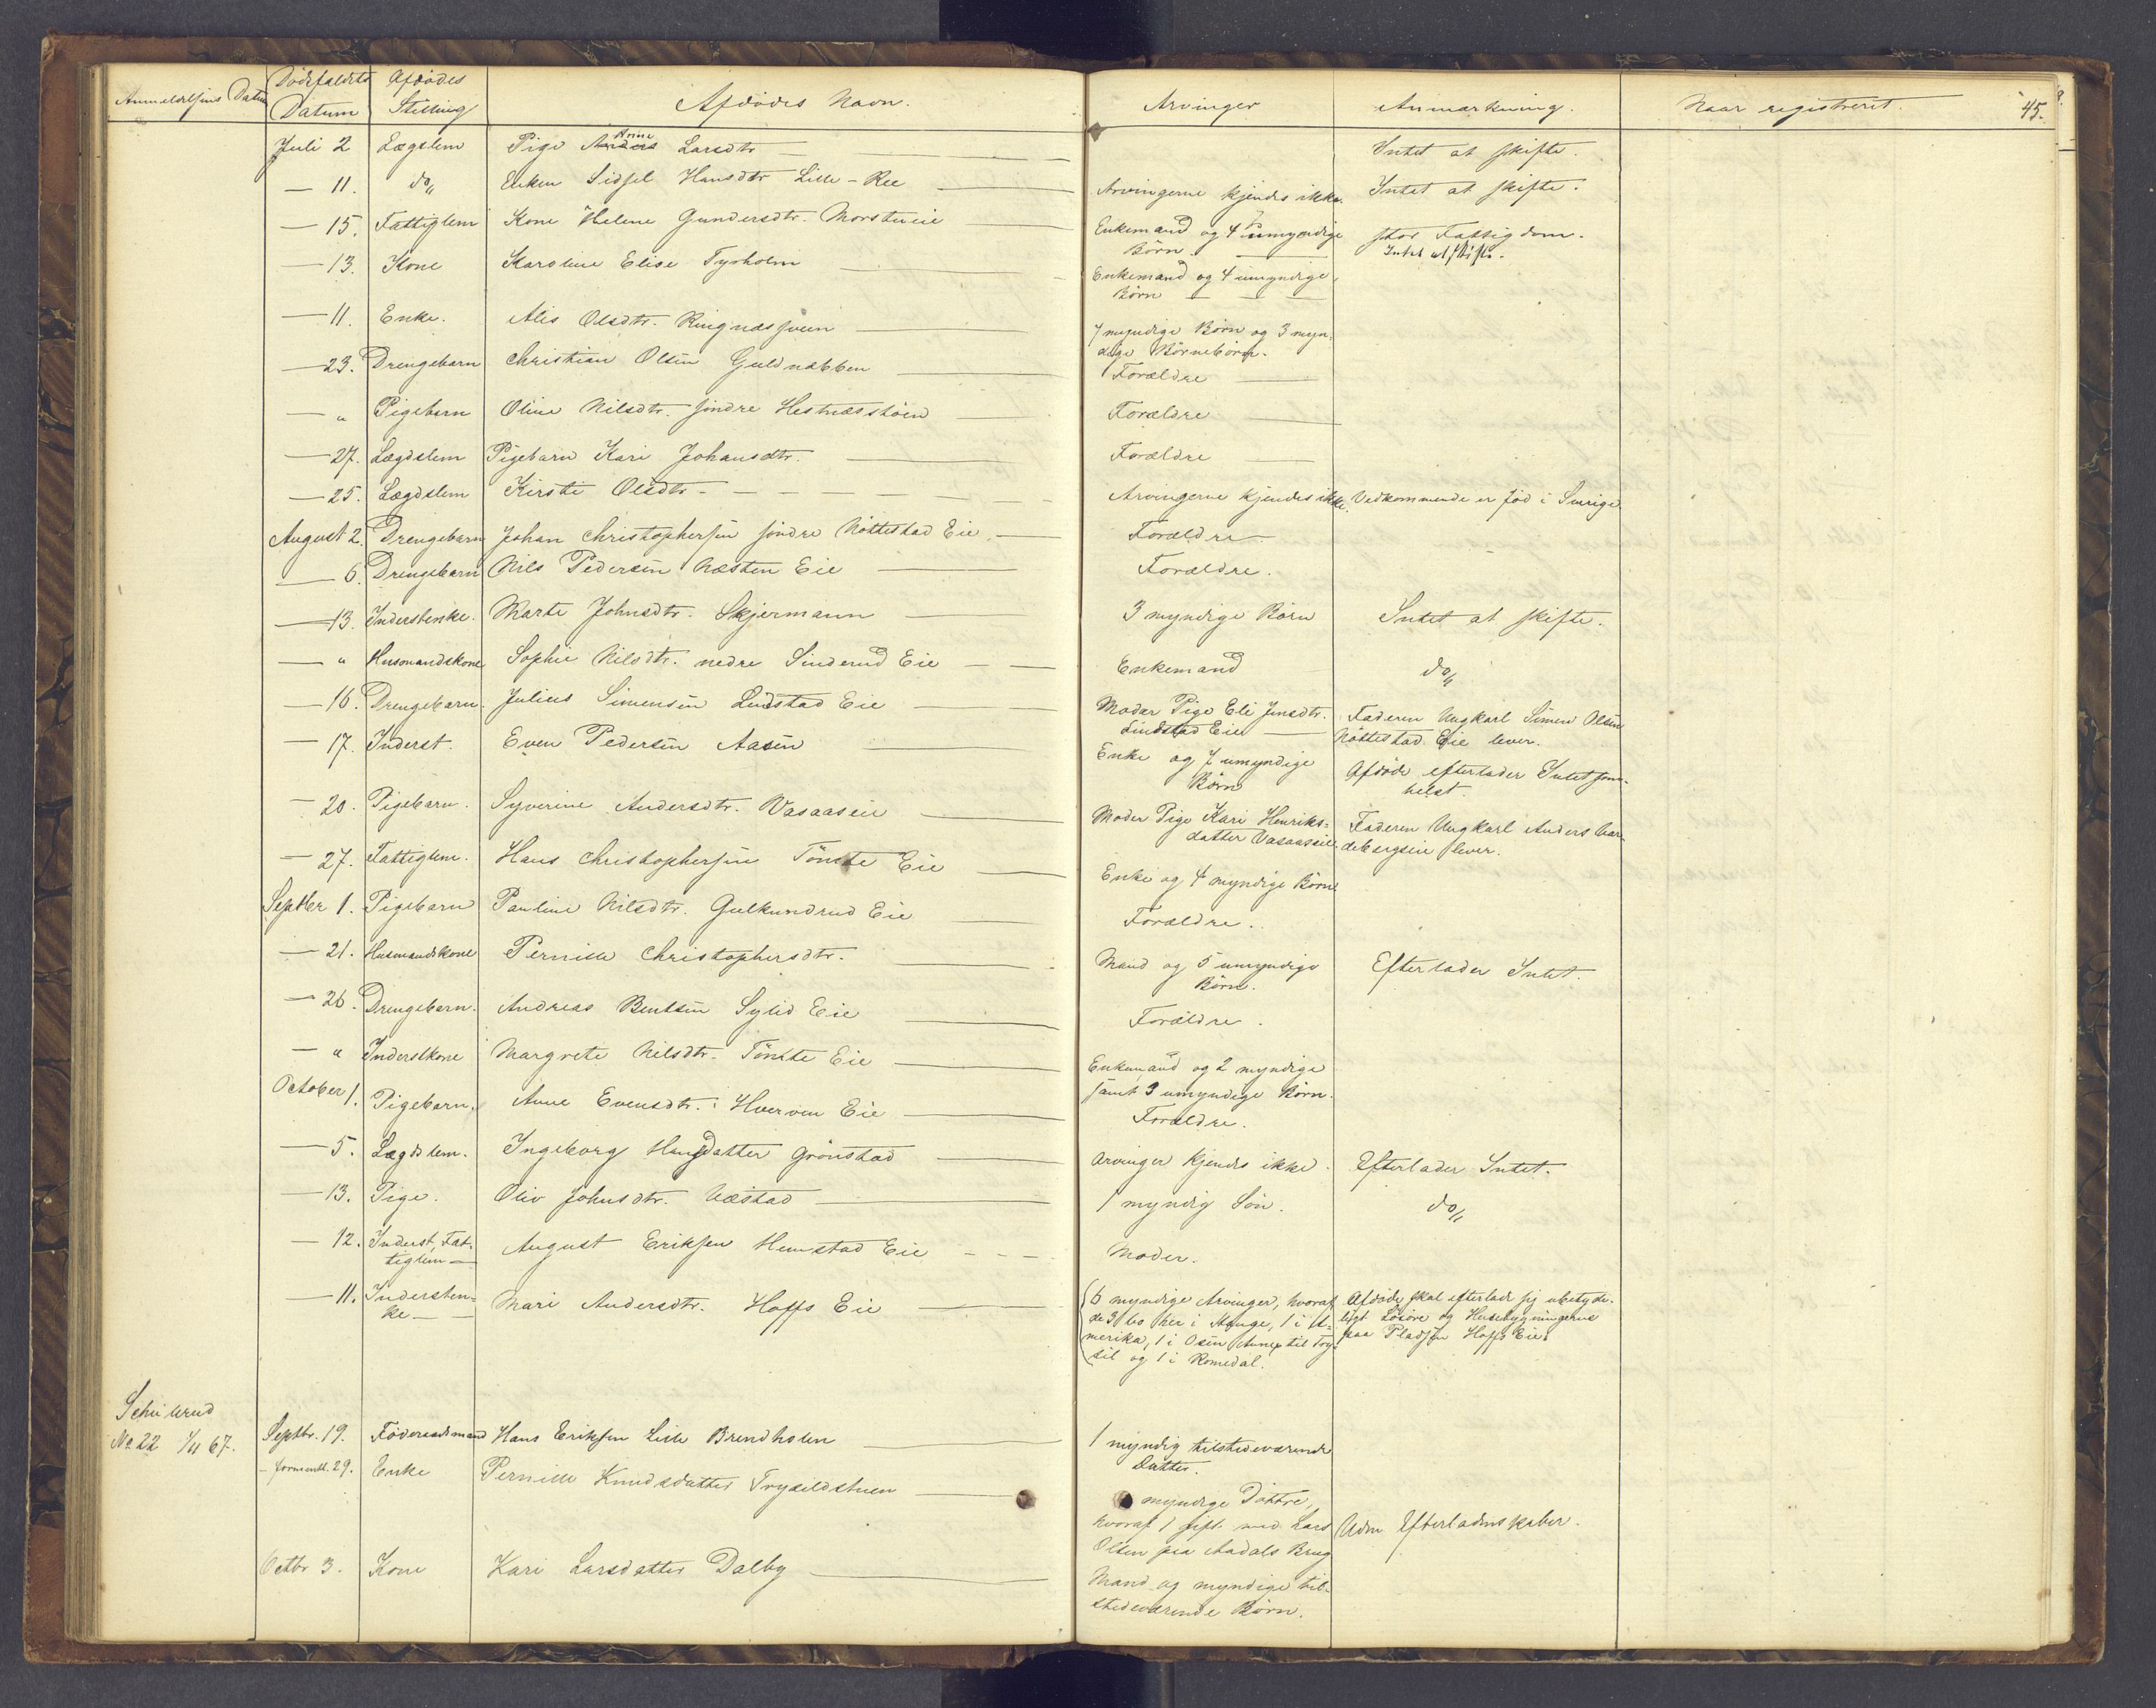 Anmeldelsens Datum Dødsfaldets Datum Afdødes Stilling Afdødes Navn. Arvinger Anmærkning. Naar registreret. 45.
Juli 2 Lægslem Pige Anders Anne Larsdtr Intet at skifte.
— 11. do Enken Sidsel Hansdtr Lille-Ree Arvingerne kjendes ikke. Intet at skifte.
— 15. Fattiglem Kone Helene Gundersdtr. Morstueie Enkemand og 4 umyndige Børn stor Fattigdom. Intet at skifte.
— 13. Kone Karoline Elise Tyrholm Enkemand og 4 umyndige Børn
— 11. Enke. Alis Olsdtr. Ringnæssveen 7 myndige Børn og 3 myndige Børnebørn.
— 23. Drengebarn Christian Olsen Guldnabben Forældre
— " Pigebarn Oline Nilsdtr. søndre Hestnæsstøen Forældre
— 27. Lægdslem Pigebarn Kari Johansdtr. Forældre
— 25. Lægdslem Kirsti Olsdtr. Arvingerne kjendes ikke. Vedkommende er fød i Sverige
August 2. Drengebarn Johan Christophersen søndre Nøttestad Eie Forældre
— 6. Drengebarn Nils Pedersen Næsten Eie Forældre.
— 13. Inderstenke. Marte Johnsdtr. Skjermann 3 myndige Børn Intet at skifte.
— " Husmandskone Sophie Nilsdtr. nedre Sinderud Eie Enkemand do
— 16. Drengebarn. Julius Simensen Lindstad Eie Moder Pige Eli Jensdtr. Lindstad Eie Faderen Ungkarl Simen Olsen Nøttestad Eie lever.
— 17. Inderst. Even Pedersen Aasen Enke og 7 umyndige Børn Afdøde efterlader Intet somhelst.
— 20. Pigebarn. Syverine Andersdtr. Vasaaseie Moder Pige Kari Henriksdatter Vasaaseie Faderen Ungkarl Anders Vardebergseie lever.
— 27. Fattiglem. Hans Christophersen Tømte Eie Enke og 4 myndige Børn
Septber 1. Pigebarn Pauline Nilsdtr. Gulkundrud Eie Forældre.
— 21. Husmandskone Pernille Christophersdtr. Mand og 5 umyndige Børn. Efterlader Intet.
— 26. Drengebarn. Andreas Bentsen Sylid Eie Forældre.
— " Inderstkone Margrete Nilsdtr. Tømte Eie Enkemand og 2 myndige samt 3 umyndige Børn.
October 1. Pigebarn. Anne Evensdtr. Hverven Eie Forældre.
— 5. Lægdslem. Ingeborg Hansdatter Grønstad Arvinger kjendes ikke. Efterlader Intet.
— 13. Pige. Oliv Johnsdtr. Næstad 1 myndig Søn. do
— 12. Inderst, Fattiglem August Eriksen Hemstad Eie Moder.
— 11. Inderstenke Mari Andersdtr. Hoffs Eie 6 myndige Arvinger, hvoraf
de 3 bo her i Stange, 1 i Amerika, 1 i Osen Annex til Trysil og 1 i Romedal.
Afdøde skal efterlade sig ubetydeligt Løsøre og Husebygningerne paa Pladsen Hoffs Eie.
Schülerud
No 22 1/11 67. Septbr. 19. Føderaadsmand Hans Eriksen Lille Brendholen 1 myndig tilstedeværende Datter.
— formentl. 29. Enke Pernille Knudsdatter Trysildstuen myndige Døttre,
hvoraf 1 gift med Lars Olsen paa Aadals Brug Uden Efterladenskaber.
Octbr 3. Kone Kari Larsdatter Dalby Mand og myndige tilstedeværende Børn.